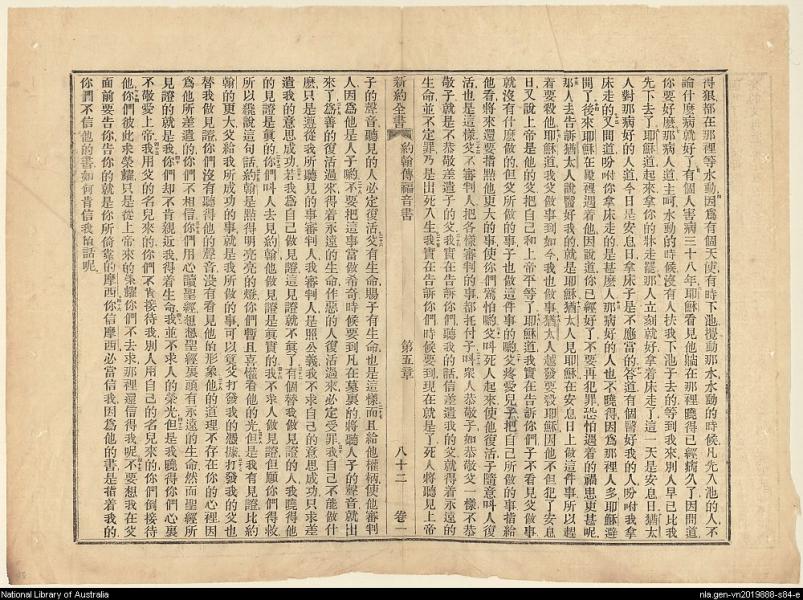 得狠都在那裡等水動因爲有個天使有時下池攪動那水水動的時候凡先入池的人不
論什麼病就好了有個人害病三十八年耶穌看見他躺在那裡曉得已經病久了因問道
你要好麼那病人道主呵水動的時候沒有人扶我下池子去的等到我來別人早已比我
先下去了耶穌道起來拿你的牀走罷那人立刻就好拿着牀走了這一天是安息日猶太
人對那病好的人道今日是安息日拿床子是不應當的答道有個醫好我的人吩咐我拿
床走的又問道吩咐你拿床走的是甚麼人那病好的人也不曉得因爲那裡人多耶穌避
開了後來耶穌在殿裡遇着他因說道你已經好了不要再犯罪恐怕遇着的禍患更甚呢
那人去告訴猶太人說醫好我的就是耶穌猶太人見耶穌在安息日上做這件事所以趕
着要殺他耶穌道我父做事到如今我也做事猶太人越發要殺耶穌因他不但犯了安息
日又說上帝是他的父把自己和上帝平等了耶穌道我實在告訴你們子不看見父做事
就沒有什麼做的但父所做的事子也做這件事的聽父疼愛兒子把自己所做的事指給
他看將來還要指點他更大的事使你們驚怕喲父叫死人起來使他復活子隨意叫人復
活也是這樣父不審判人把各樣審判的事都托付子叫衆人恭敬子如恭敬父一樣不恭
敬子就是不恭敬差遣子的父我實在告訴你們聽我的話信差遣我的父就得着永遠的
生命並不定罪乃是出死入生我實在告訴你們時候要到現在就是了死人將聽見上帝
新約全書 約翰傳福音書 第五章 八十二 卷一
子的聲音聽見的人必定復活父有生命賜子有生命也是這樣而且給他權柄使他審判
人因爲他是人子喲不要把這事當做希奇時候要到凡在墓裏的將聽人子的聲音就出
來了爲善的復活過來得着永遠的生命作惡的人復活過來必定受罪我自己不能做什
麼只是遵從我所聽見的事審判人我審判人是照公義我不求自己的意思成功只求差
遣我的意思成功若我爲自己做見證這見證就不眞了有個替我做見證的人我曉得他
的見證是眞的你們叫人去見約翰他做見證是眞實的我不求人做見證但願你們得救
所以纔說這句話約翰是點得明亮亮的燈你們暫且喜懽看他的光但是我有見證比約
翰的更大父給我所成功的事就是我所做的事可以算父打發我的憑據打發我的父也
替我做見證你們沒有聽得他的聲音沒有看見他的形象他的道理不存在你的心裡因
爲他所差遣的你們不相信你們用心讀聖經想想聖經裏頭有永遠的生命然而聖經所
見證的就是我你們却不肯親近我得着生命我並不求人的榮光但是我曉得你們心裏
不敬愛上帝我用父的名兒來的你們不肯接待我別人用自己的名兒來的你們倒接待
他你們彼此求榮耀只是從上帝來的榮耀你們不去求那裡還信得我呢不要想我在父
面前要告你告你的就是你所倚靠的摩西你信摩西必當信我因爲他的書是指着我的
你們不信他的書如何肯信我的話呢
National Library of Australia
nla.gen-vn2019888-s84-e